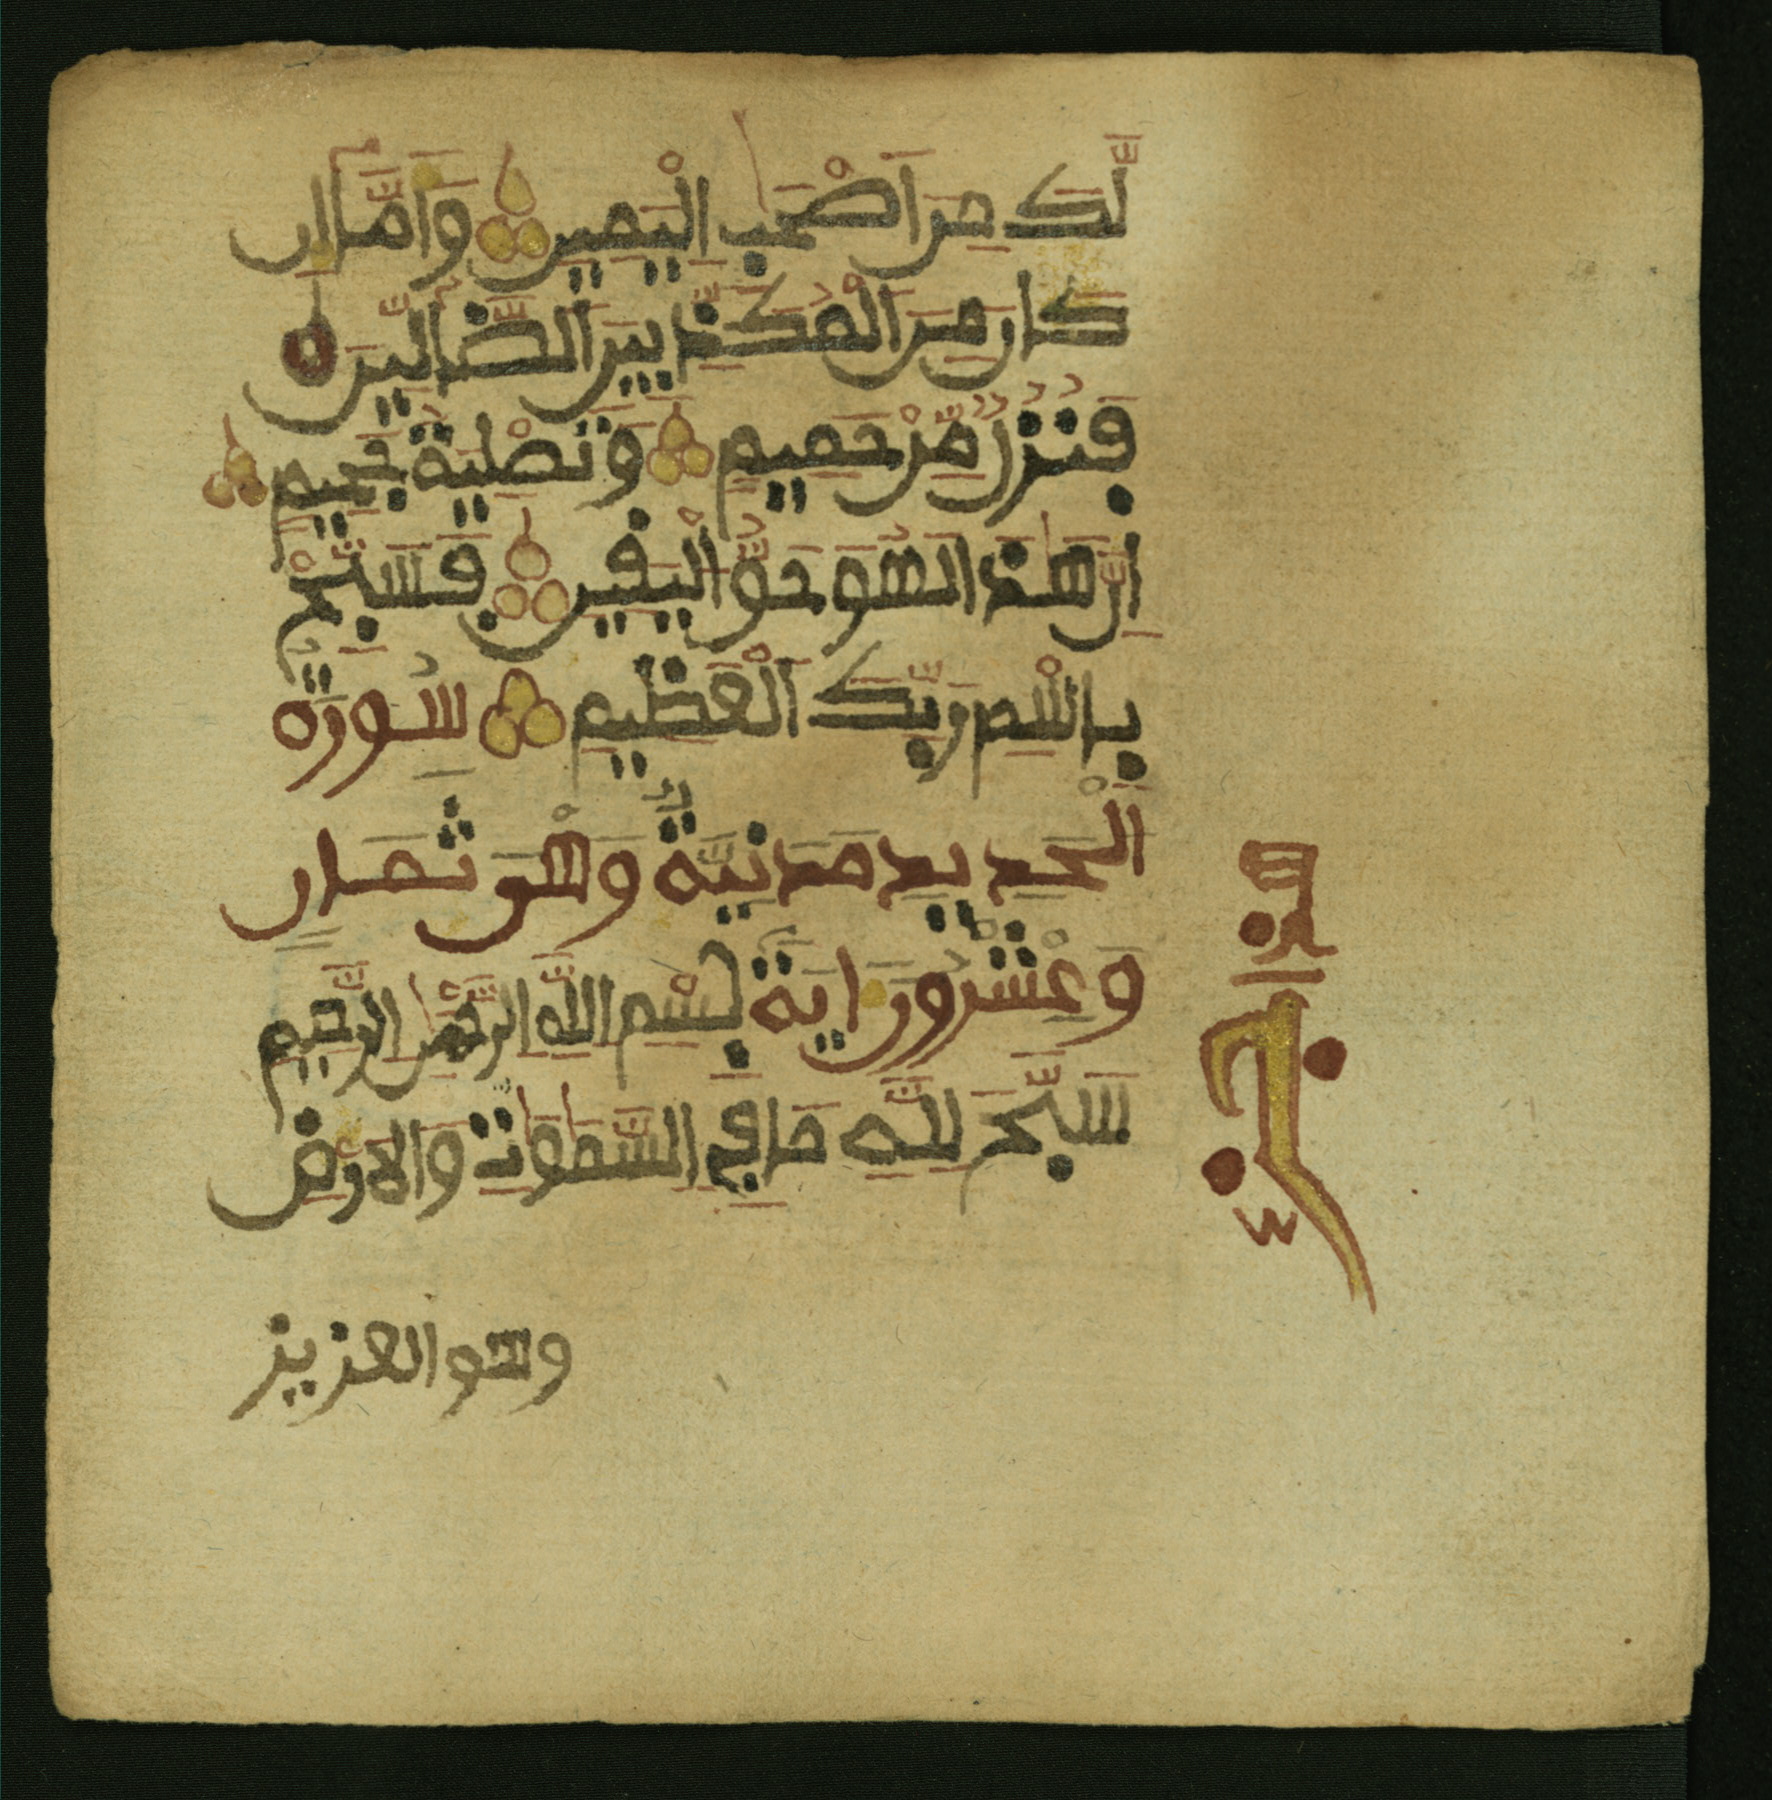 لَّكَ مِنَ اَصْحَٰبِ اِ۬لْيَمِينِ وَأَمَّا إِن
كَانَ مِنَ اَ۬لْمُكَذِّبِينَ اَ۬لضَّآلِّينَ
فَنُزُلٌ مِّنْ حَمِيمٍ وَتَصْلِيَةُ جَحِيمٍ
اِنَّ هَٰذَا لَهُوَ حَقُّ اُ۬لْيَقِينِ فَسَبِّحْ
بِاسْمِ رَبِّكَ اَ۬لْعَظِيمِ سُورَةُ
الْحَدِيدِ مَدَنِيَّةٌ وَهْىَ ثَمَانٍ
وَعِشْرُونَ ءَايَةً بِسْمِ اِللَّهِ اِلرَّحْمَٰنِ اِلرَّحِيمِ
سَبَّحَ لِلَّهِ مَا فِى اِ۬لسَّمَٰوَٰتِ وَالَارْضِ
وهو العزيز